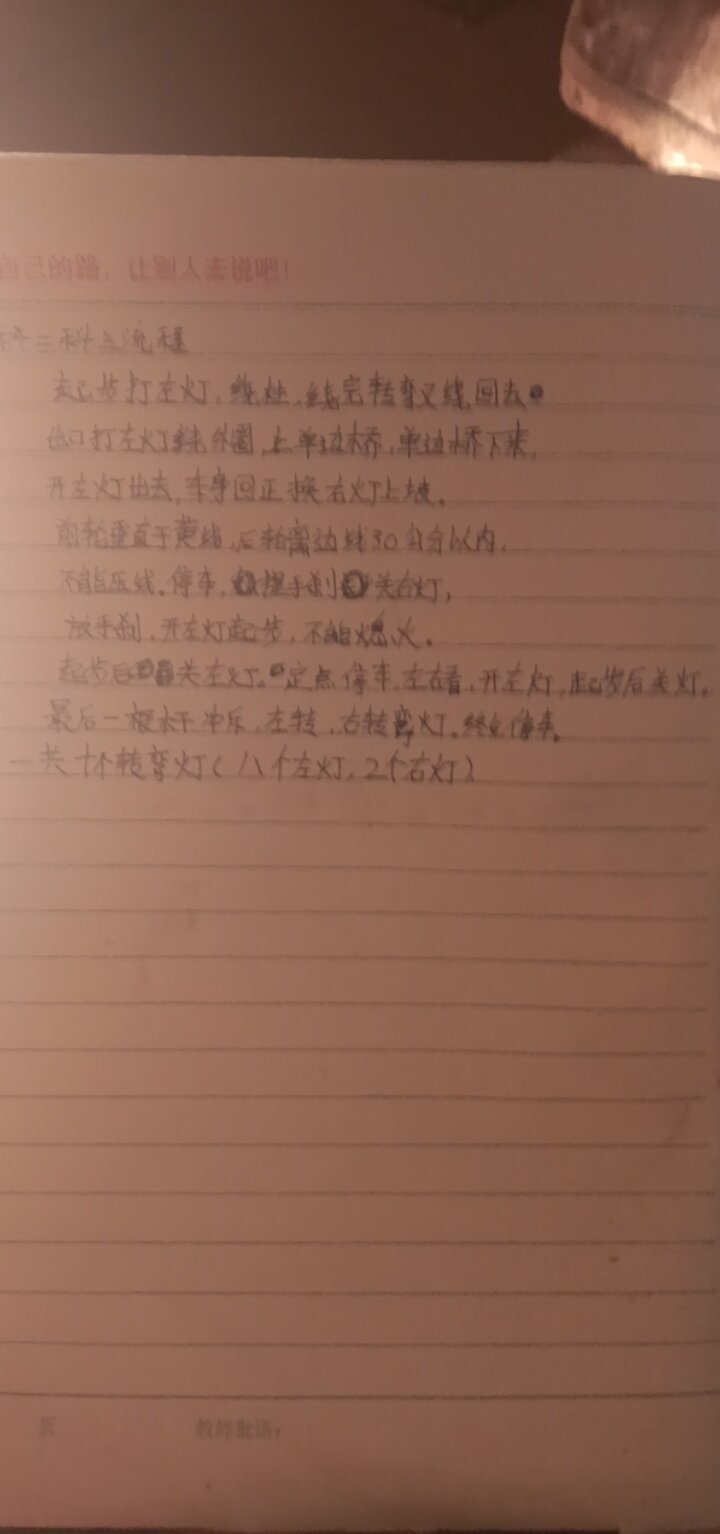 自己的路，让别人去说吧！
科二科三流程
起步打左灯，绕桩，绕完转弯又绕回去
出口打左灯绕外圈，上单边桥，单边桥下来，
开左灯出去，车身回正换右灯上坡。
前轮垂直于黄线，后轮离边线30公分以内，
不能压线。停车，提手刹关右灯，
放手刹，开左灯起步，不能熄火。
起步后关左灯。定点停车，左右看，开左灯，起步后关灯。
最后一根水平冲乐，左转，右转弯灯。终点停车。
一共十个转弯灯（八个左灯，2个右灯）
页 教师批语：